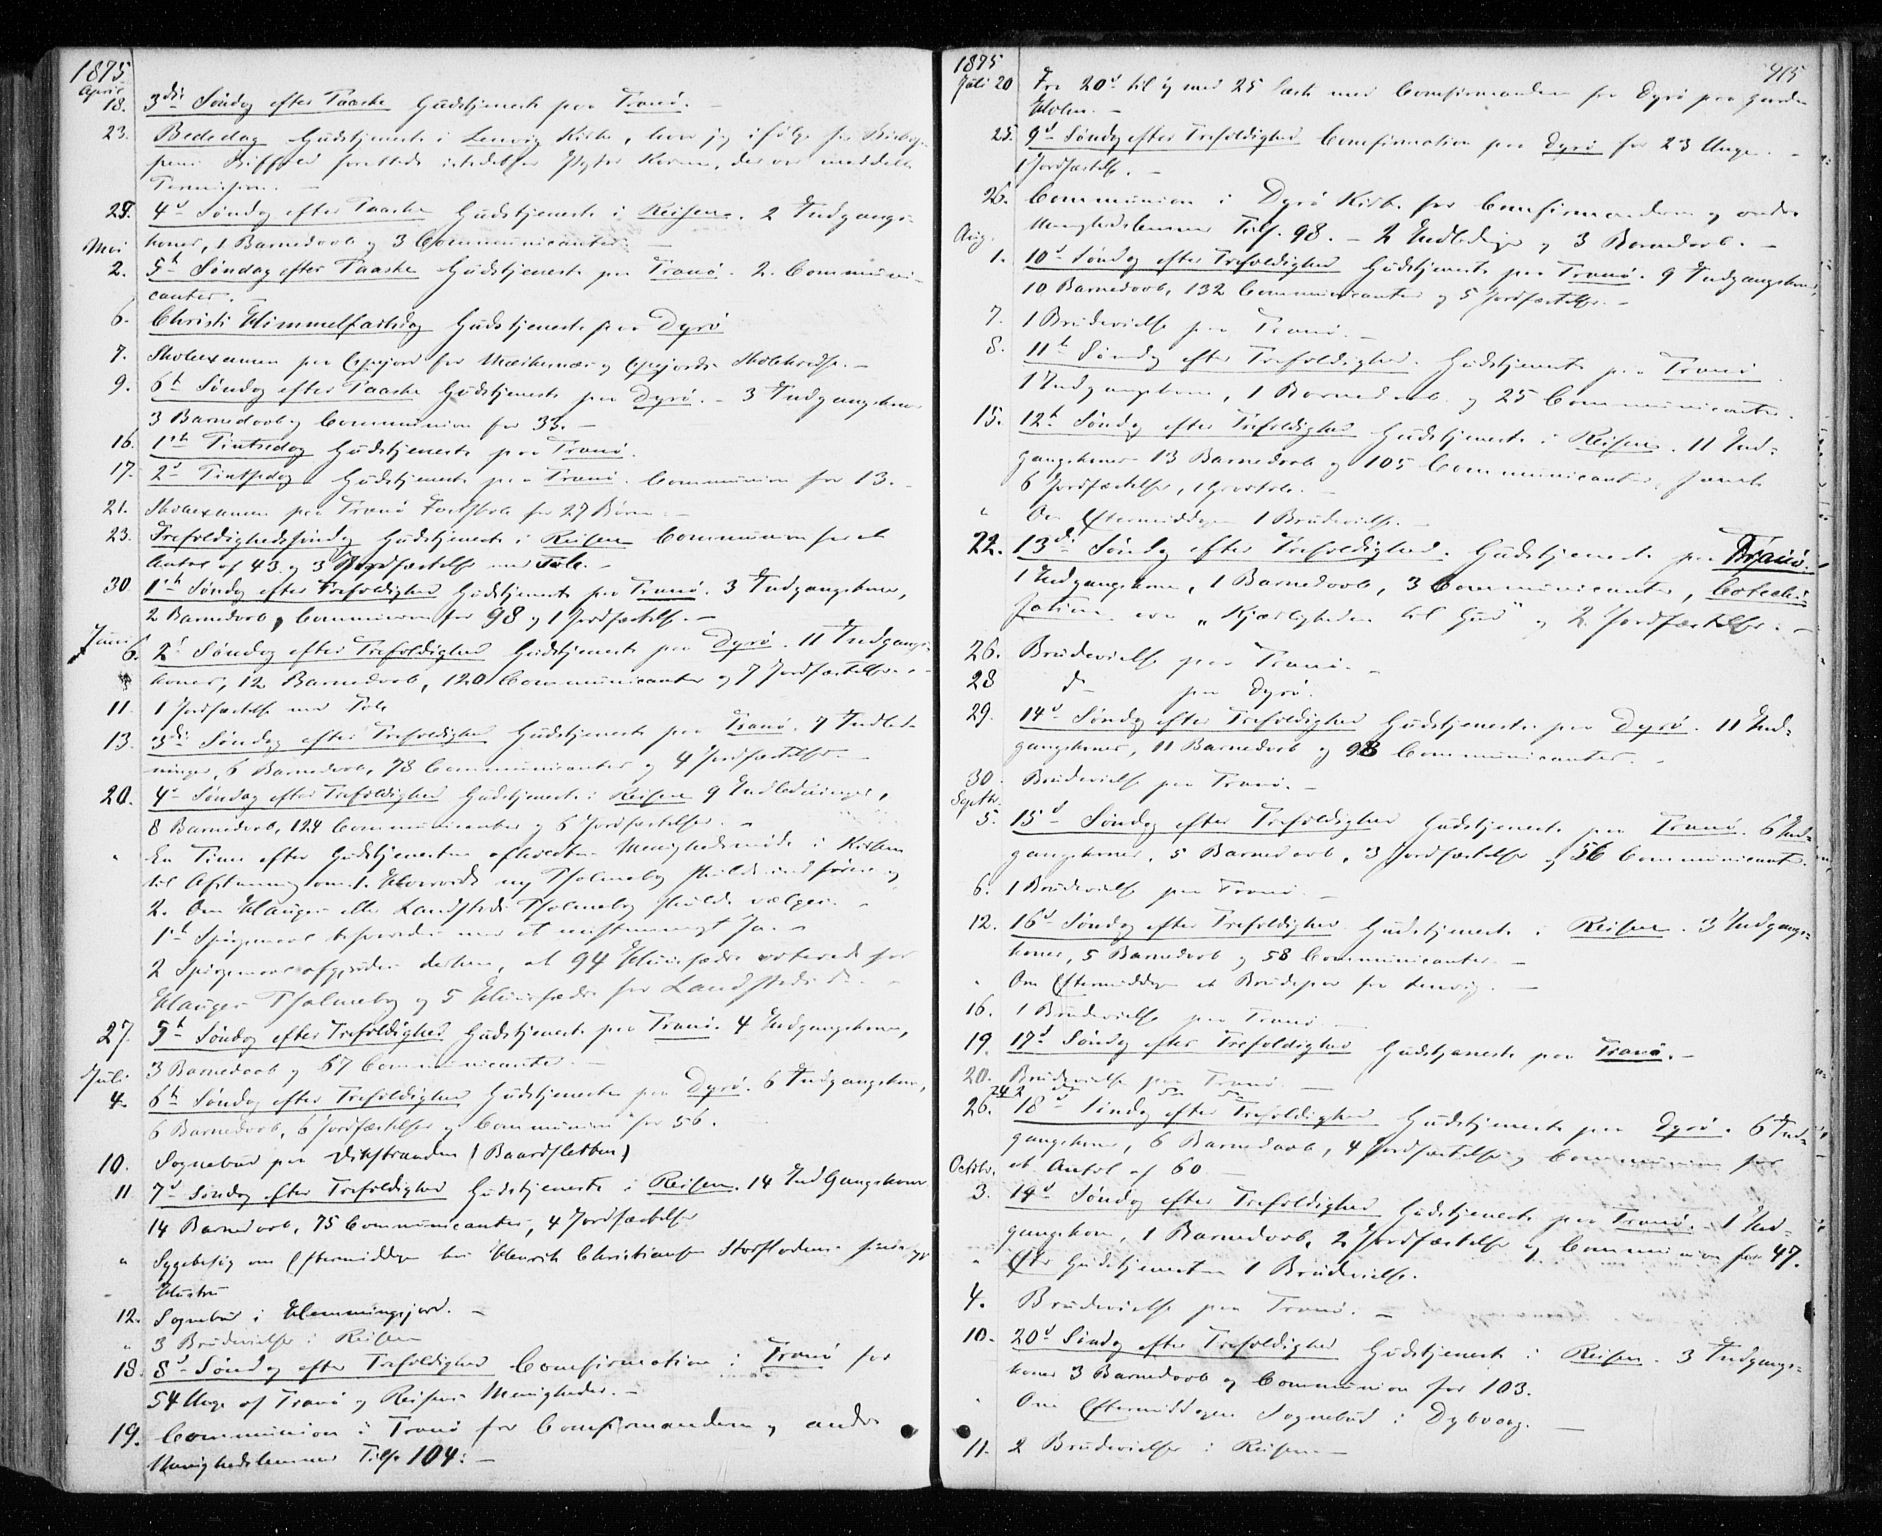 1875
April
18. 3die Søndag efter Paaske Gudstjeneste paa Tranø. –
23. Bededag Gudstjeneste i Lenvig Kirke, hvor jeg ifølge
Permission. –
25. 4d Søndag efter Paaske Gudstjeneste i Reisen. 2 Indgangs-
koner, 1 Barnedaab og 3 Communicanter. –
Mai
2. 5te Søndag efter Paaske Gudstjeneste paa Tranø. 2 Communi-
canter. –
6. Christi Himmelfartsdag Gudstjeneste paa Dyrø
7. Skoleexamen paa Gisjord for
9. 6te Søndag efter Paaske Gudstjeneste paa Dyrø. – 3 Indgangskoner
3 Barnedaab og Communion for 33. –
16. 1ste Pintsedag Gudstjeneste paa Tranø.
17. 2d Pintsedag Gudstjeneste paa Tranø. Communion for 13. –
21. Skoleexamen paa Tranø Fastskole for 27 Børn. –
23. Trefoldighedssøndag Gudstjeneste i Reisen Communion for et
Antal af 43 og 3 Jordfæstelser med Tale. –
30. 1ste Søndag efter Trefoldighed Gudstjeneste paa Tranø. 3 Indgangskoner,
2 Barnedaab, Communion for 98 og 1 Jordfæstelse. –
Juni
6. 2d Søndag efter Trefoldighed Gudstjeneste paa Dyrø. 11 Indgangs-
koner, 12 Barnedaab, 120 Communicanter og 7 Jordfæstelser. –
11. 1 Jordfæstelse med Tale
13. 3die Søndag efter Trefoldighed Gudstjeneste paa Tranø. 7 Indled-
ninger, 6 Barnedaab, 78 Communicanter og 4 Jordfæstelser. –
20. 4d Søndag efter Trefoldighed Gudstjeneste i Reisen 9 Indledninger,
8 Barnedaab, 124 Communicanter og 6 Jordfæstelser. –
" En Time efter Gudstjenesten afholdtes Menighedsmøde i Kirken
til Afstemning om 1. Hvorvidt ny Psalmebog skulde indføres og
2. Om Hauges eller Landstads Psalmebog skulde vælges. –
1ste Spørgsmaal besvaredes med et enstemmigt Ja. –
2 Spørgsmaal afgjordes derhen, at 94 Huusfædre voterede for
Hauges Psalmebog og 5 Huusfædre for Landstads do. –
27. 5te Søndag efter Trefoldighed Gudstjeneste paa Tranø. 4 Indgangskoner,
3 Barnedaab og 57 Communicanter. –
Juli
4. 6te Søndag efter Trefoldighed Gudstjeneste paa Dyrø. 6 Indgangskoner,
6 Barnedaab, 6 Jordfæstelser og Communion for 56.
10. Sognebud paa Vikstranden (Baardsletten)
11. 7d Søndag efter Trefoldighed Gudstjeneste i Reisen. 14 Indgangskoner
14 Barnedaab, 75 Communicanter, 4 Jordfæstelser
" Sygebesøg om Eftermiddagen hos Henrik Christiansen Storslodens
Hustru
12. Sognebud i Hemmingsjord. –
" 3 Brudevielser i Reisen
18. 8d Søndag efter Trefoldighed Confirmation i Tranø for
54 Unge af Tranø og Reisens Menigheder. –
19. Communion i Tranø for Confirmanderne og andre
Menighedslemmer Tils. 104. –
1875 415
Juli 20 Fra 20d til
Holm. –
25. 9d Søndag efter Trefoldighed Confirmation paa Dyrø for 23 Unge. –
1 Jordfæstelse. –
26. Communion i Dyrø Kirke for Confirmanderne og andre
Menighedslemmer Tils. 98. – 2 Indledninger og 3 Barnedaab. –
Aug.
1. 10d Søndag efter Trefoldighed Gudstjeneste paa Tranø. 9 Indgangskoner,
10 Barnedaab, 132 Communicanter og 5 Jordfæstelser. –
7. 1 Brudevielse paa Tranø. –
8. 11te Søndag efter Trefoldighed. Gudstjeneste paa Tranø.
1 Indgangskone, 1 Barnedaab og 25 Communicanter.
15. 12te Søndag efter Trefoldighed Gudstjeneste i Reisen. 11 Ind-
gangskoner 13 Barnedaab og 105 Communicanter, samt
6 Jordfæstelser, 1 Gravtale. –
" Om Eftermiddagen 1 Brudevielse. –
22. 13de Søndag efter Trefoldighed. Gudstjeneste paa Tranø.
1 Indgangskone, 1 Barnedaab, 3 Communicanter, Catechi-
sation over "Kjærligheden til Gud" og 2 Jordfæstelser. –
26. Brudevielse paa Tranø. –
28 do paa Dyrø.
29. 14d Søndag efter Trefoldighed Gudstjeneste paa Dyrø. 11 Ind-
gangskoner, 11 Barnedaab og 98 Communicanter. –
30. Brudevielse paa Tranø. –
Septbr.
5. 15d Søndag efter Trefoldighed Gudstjeneste paa Tranø. 6 Ind-
gangskoner, 5 Barnedaab, 3 Jordfæstelser og 56 Communicanter.
6. 1 Brudevielse paa Tranø. –
12. 16d Søndag efter Trefoldighed Gudstjeneste i Reisen. 3 Indgangs-
koner, 5 Barnedaab og 58 Communicanter. –
" Om Eftermiddagen et Brudepar fra Lenvig. –
16. 1 Brudevielse paa Tranø –
19. 17d Søndag efter Trefoldighed Gudstjeneste paa Tranø. –
20. Brudevielse paa Tranø. –
24 2 do do do
26. 18d Søndag efter Trefoldighed Gudstjeneste paa Dyrø. 6 Ind-
gangskoner, 6 Barnedaab, 4 Jordfæstelser og Communion for
et Antal af 60 –
Octbr.
3. 19d Søndag efter Trefoldighed Gudstjeneste paa Tranø. 1 Ind-
gangskone, 1 Barnedaab, 2 Jordfæstelser og Communion for 47.
" Efter Gudstjenesten 1 Brudevielse.
4. Brudevielse paa Tranø. –
10. 20d Søndag efter Trefoldighed Gudstjeneste i Reisen. 3 Indgangs-
koner 3 Barnedaab og Communion for 103.
" Om Eftermiddagen Sognebud i Dybvaag. –
11. 2 Brudevielser i Reisen –